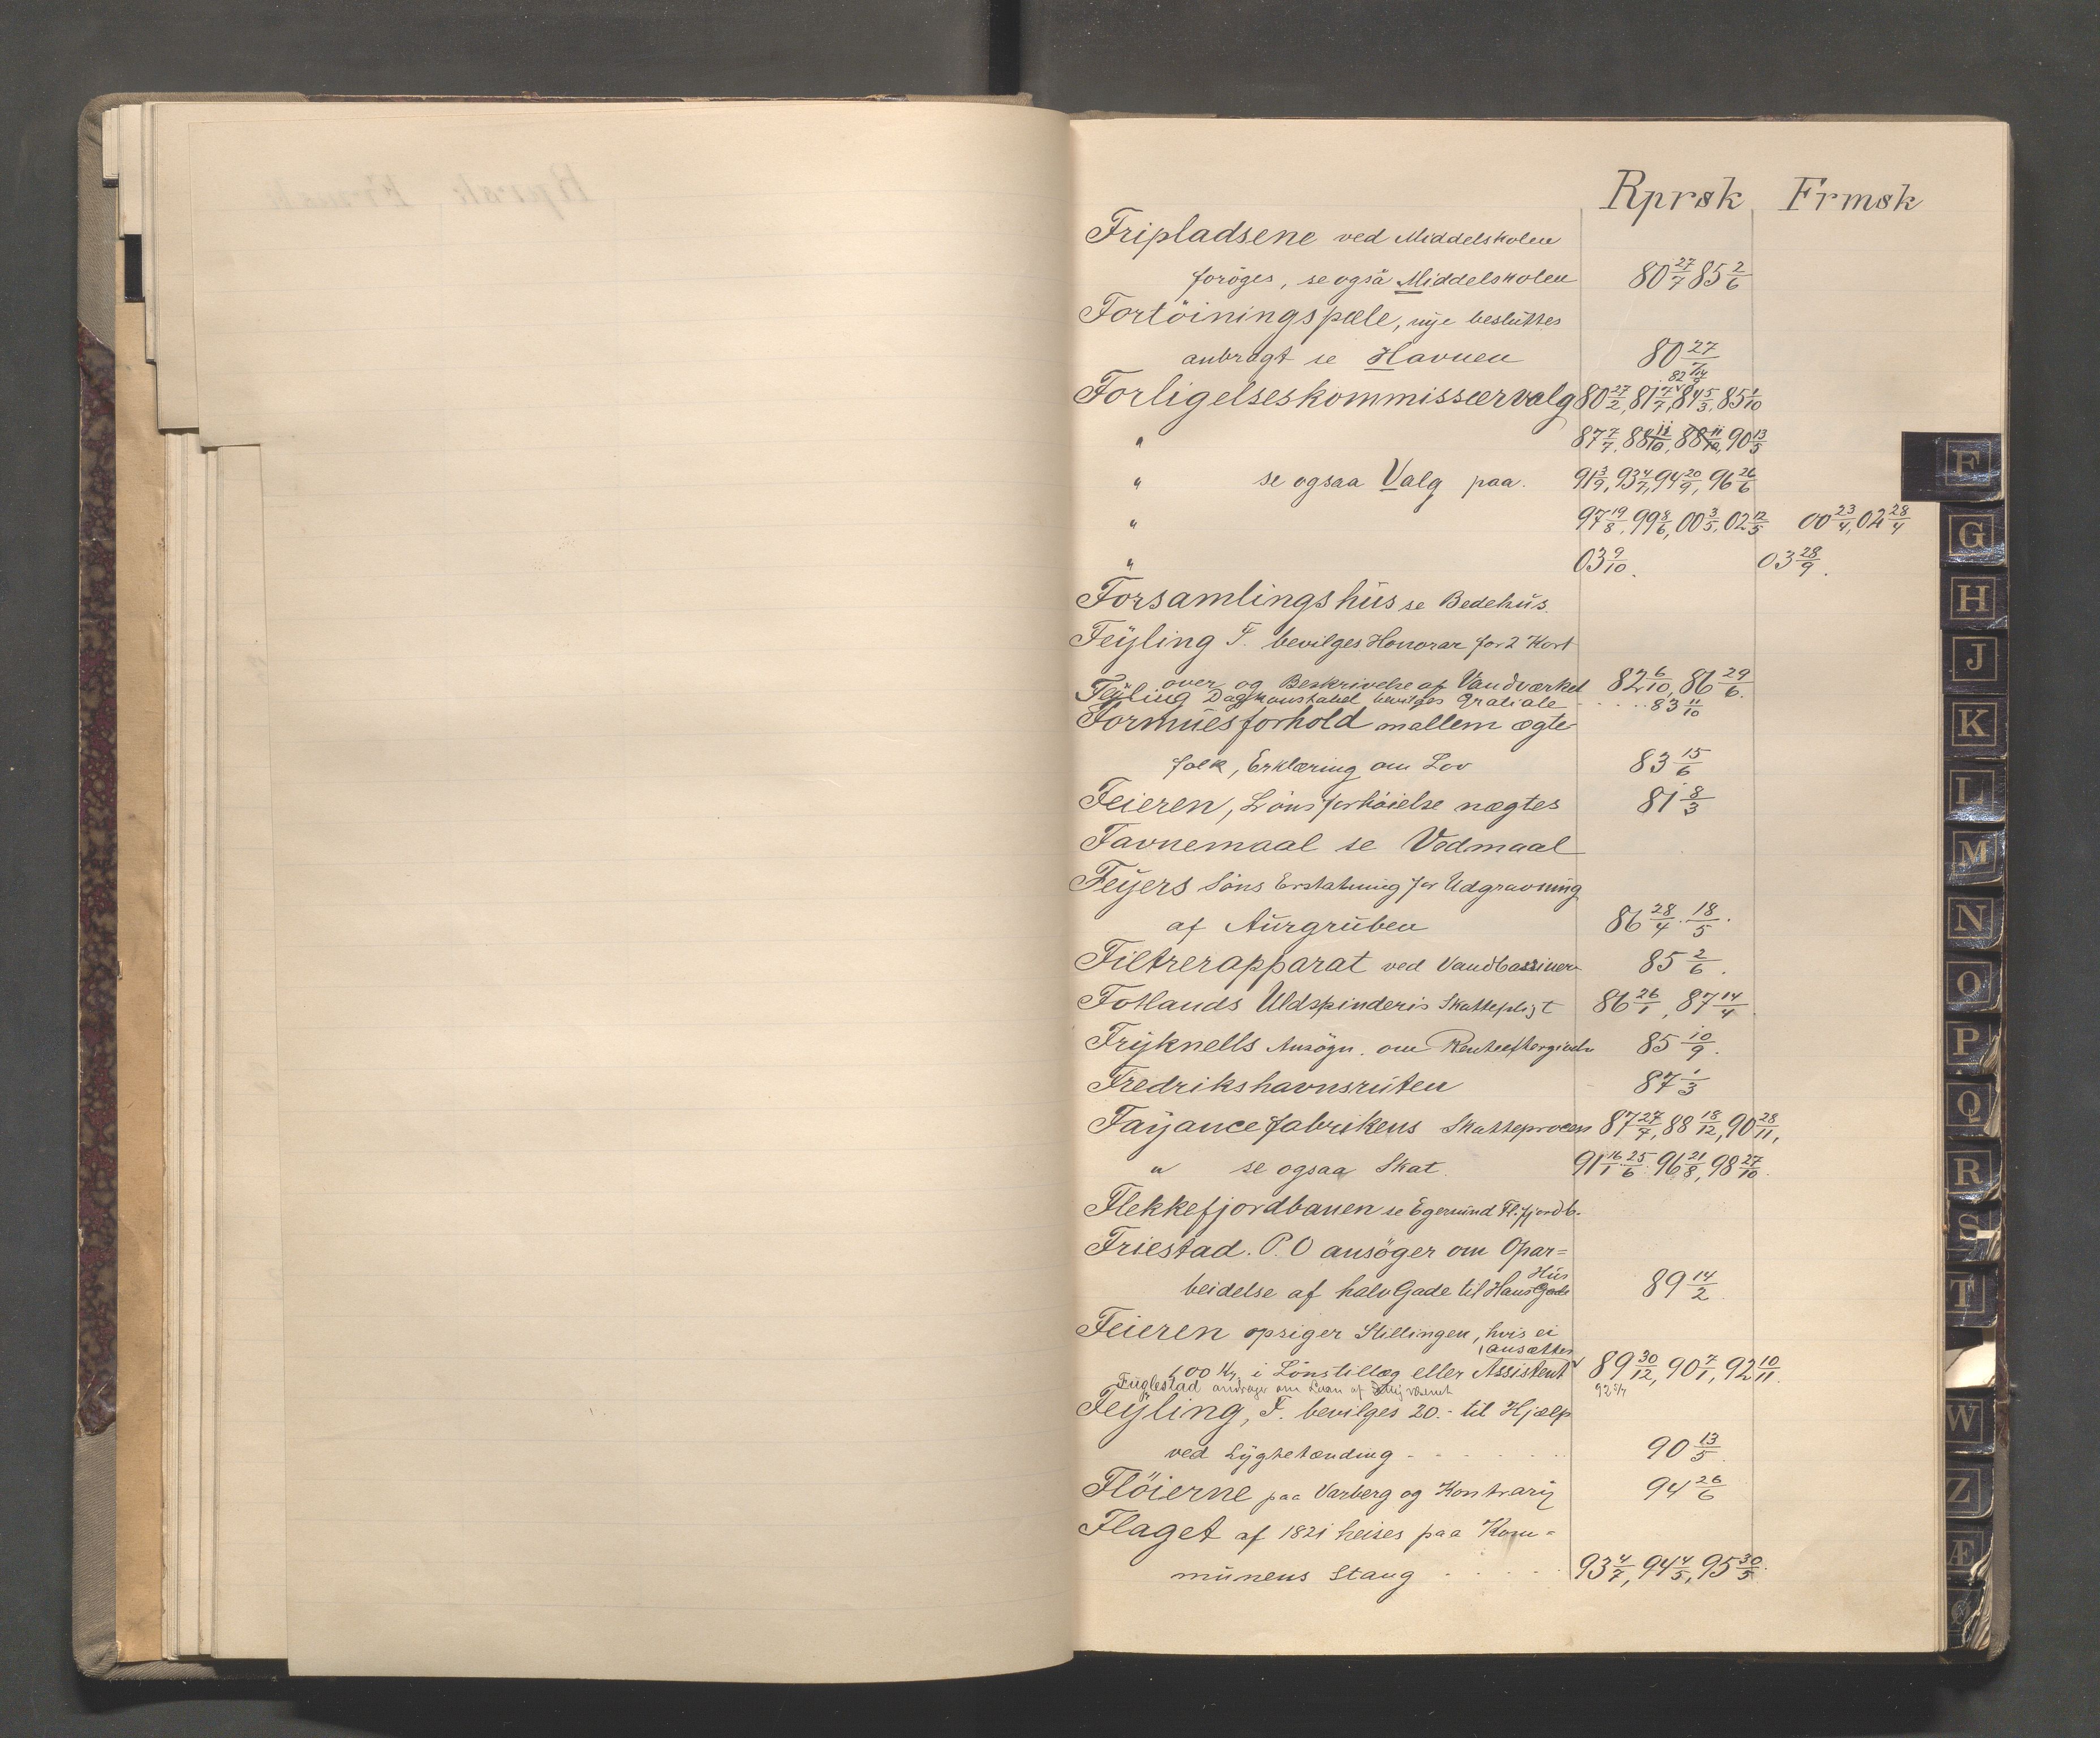 Rprsk Frmsk
Fripladsene ved Middelskolen
foröges, se også Middelskolen 80 27/7 85 2/6
Fortöiningspæle, nye besluttes
anbragt se Havnen 80 27/7
82 14/9
Forligelseskommissærvalg 80 27/2, 81 7/7, 84 5/3, 85 1/10
" 87 7/7, 88 11/10, 88 11/12, 90 13/5
" se ogsaa Valg paa. 91 3/9, 93 4/7, 94 20/9, 96 26/6
" 97 19/8, 99 8/6, 00 3/5, 02 12/5 00 23/4, 02 28/4
" 03 9/10. 03 28/9.
Forsamlingshus se Bedehus.
Feyling T. bevilges Honorar for 2 Kort
over og Beskrivelse af Vandværket 82 6/10, 86 29/6.
Feyling Dagkonstabel bevilges Gratiale 83 11/10
Formuesforhold mellem ægte
folk, Erklæring om Lov 83 15/6
Feieren, Lönsforhöielse nægtes 81 8/3
Favnemaal se Vedmaal
Feyers Söns Erstatning for Udgravning
af Aurgruben 86 28/4. 18/5.
Filtrerapparat ved Vandbassinen 85 2/6.
Fotlands Uldspinderis Skattepligt 86 26/1, 87 14/4
Fryknells Ansögn. om 85 10/9.
Fredrikshavnsruten 87 1/3
Fayancefabrikens Skatteproces 87 27/7, 88 18/12, 90 28/11,
" se ogsaa Skat. 91 16/1 25/6. 96 21/8, 98 27/10.
Flekkefjordbanen se Egersund Fl.fjordb.
Friestad. P. O ansöger om Opar=
beidelse af halv Gade til Hans Hus Gade 89 14/2
Feieren opsiger Stillingen, hvis ei
ansættes
100 Kr. i Lönstillæg eller Assistent 89 30/12, 90 7/1, 92 10/11.
Fuglestad andrager om Laan af
Feyling, T. bevilges 20.- til Hjælp
ved Lygtetænding 90 13/5.
Flöierne paa Varberg og Kontrari 94 26/6
Flaget af 1821 heises paa Kom=
munens Stang 93 4/7, 94 4/5, 95 30/5.
F
G
H
J
K
L
M
N
O
P
Q
R
S
T
W
Z
Æ